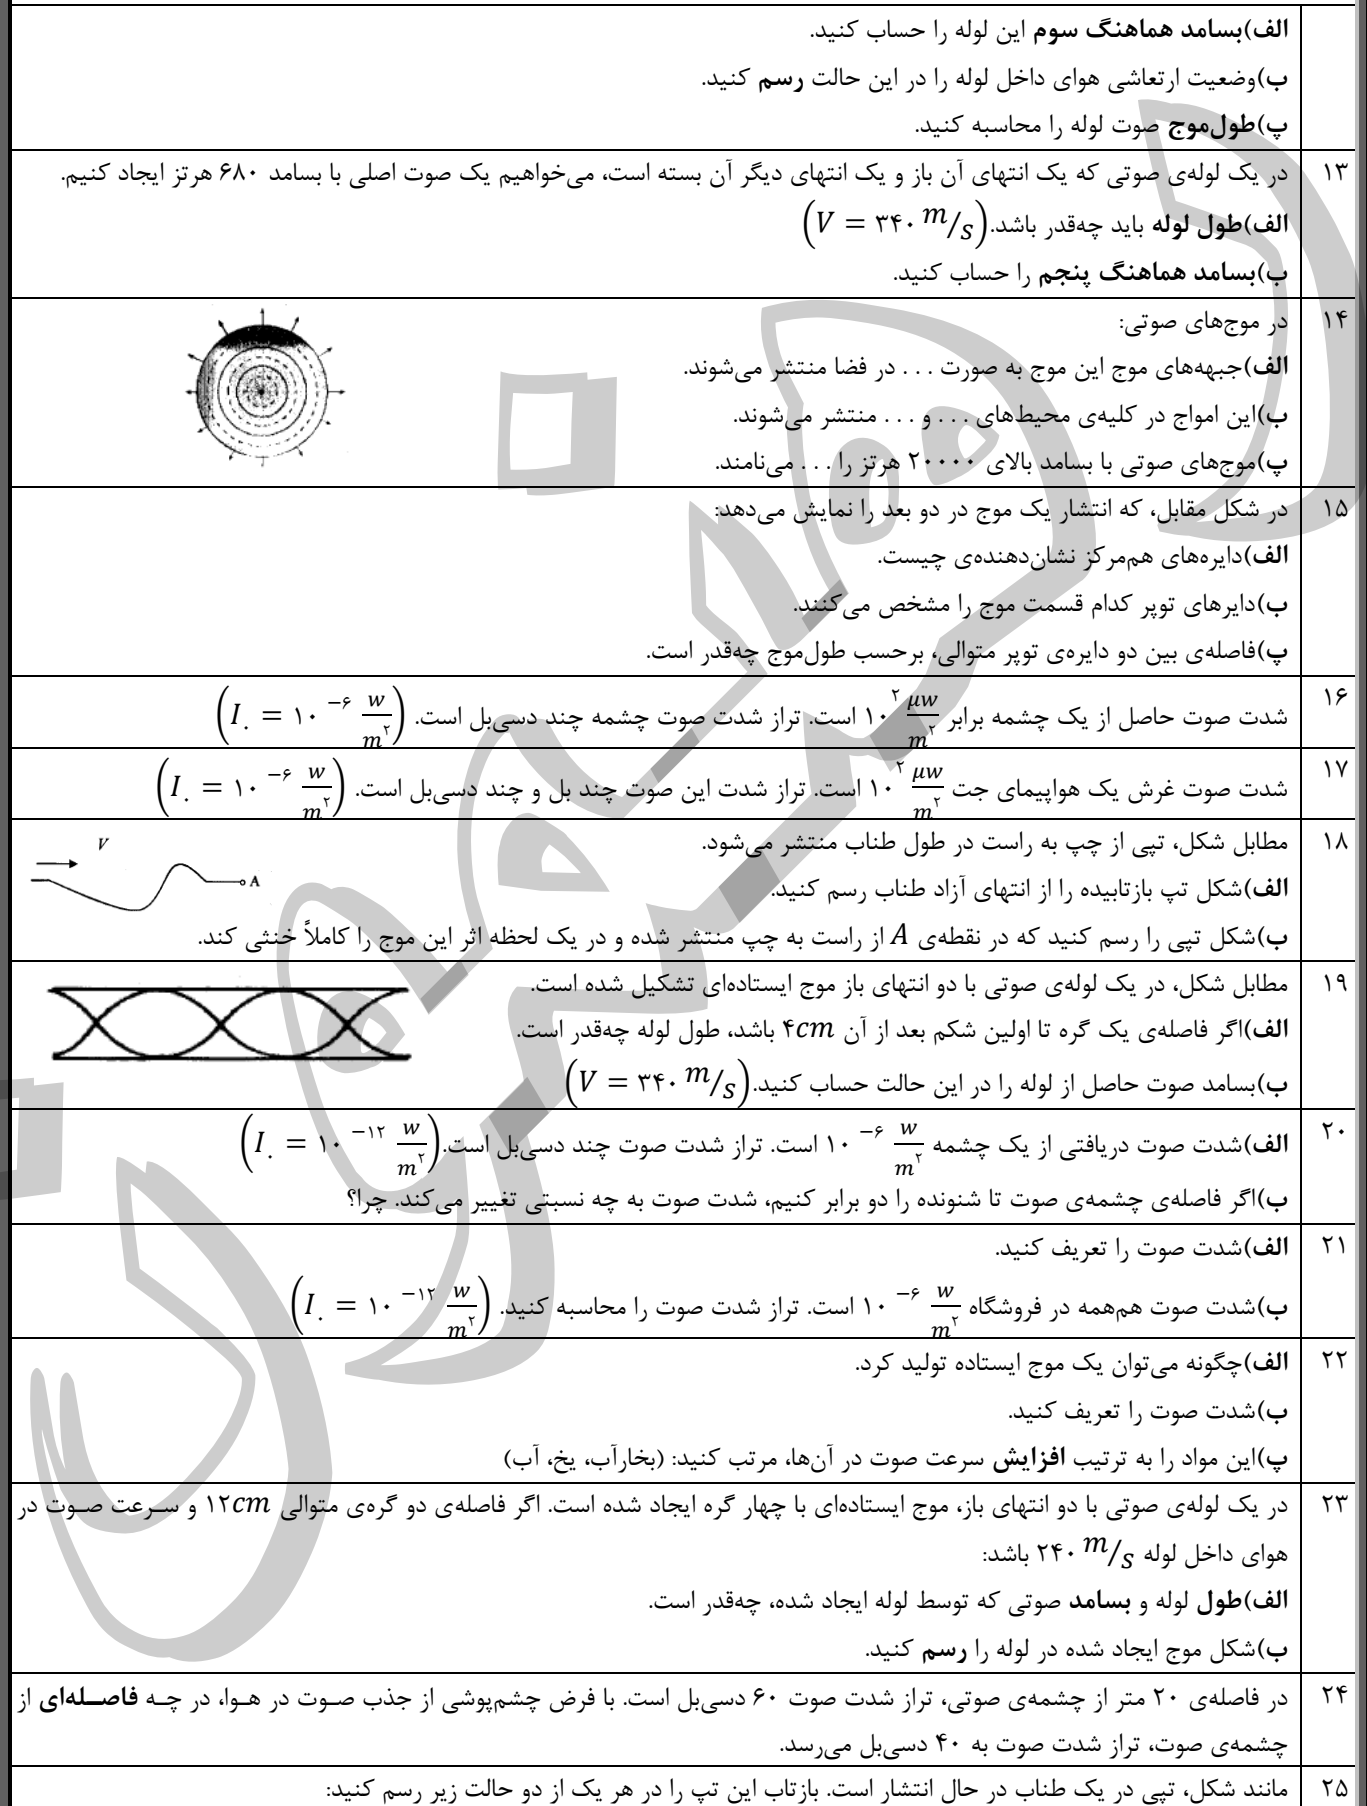 الف)بسامد هماهنگ سوم این لوله را حساب کنید.
ب)وضعیت ارتعاشی هوای داخل لوله را در این حالت رسم کنید.
پ)طول‌موج صوت لوله را محاسبه کنید.
۱۳ در یک لوله‌ی صوتی که یک انتهای آن باز و یک انتهای دیگر آن بسته است، می‌خواهیم یک صوت اصلی با بسامد ۶۸۰ هرتز ایجاد کنیم.
الف)طول لوله باید چه‌قدر باشد.(V = ۳۴۰ m/s)
ب)بسامد هماهنگ پنجم را حساب کنید.
۱۴ در موج‌های صوتی:
الف)جبهه‌های موج این موج به صورت . . . در فضا منتشر می‌شوند.
ب)این امواج در کلیه‌ی محیط‌های . . . و . . . منتشر می‌شوند.
پ)موج‌های صوتی با بسامد بالای ۲۰۰۰۰ هرتز را . . . می‌نامند.
۱۵ در شکل مقابل، که انتشار یک موج در دو بعد را نمایش می‌دهد:
الف)دایره‌های هم‌مرکز نشان‌دهنده‌ی چیست.
ب)دایرهای توپر کدام قسمت موج را مشخص می‌کنند.
پ)فاصله‌ی بین دو دایره‌ی توپر متوالی، برحسب طول‌موج چه‌قدر است.
۱۶ شدت صوت حاصل از یک چشمه برابر ۱۰^۲ μw/m^۲ است. تراز شدت صوت چشمه چند دسی‌بل است. (I۰ = ۱۰^−۶ w/m^۲)
۱۷ شدت صوت غرش یک هواپیمای جت ۱۰^۲ μw/m^۲ است. تراز شدت این صوت چند بل و چند دسی‌بل است. (I۰ = ۱۰^−۶ w/m^۲)
۱۸ مطابل شکل، تپی از چپ به راست در طول طناب منتشر می‌شود.
V
A
الف)شکل تپ بازتابیده را از انتهای آزاد طناب رسم کنید.
ب)شکل تپی را رسم کنید که در نقطه‌ی A از راست به چپ منتشر شده و در یک لحظه اثر این موج را کاملاً خنثی کند.
۱۹ مطابل شکل، در یک لوله‌ی صوتی با دو انتهای باز موج ایستاده‌ای تشکیل شده است.
الف)اگر فاصله‌ی یک گره تا اولین شکم بعد از آن ۴cm باشد، طول لوله چه‌قدر است.
ب)بسامد صوت حاصل از لوله را در این حالت حساب کنید.(V = ۳۴۰ m/s)
۲۰ الف)شدت صوت دریافتی از یک چشمه ۱۰^−۶ w/m^۲ است. تراز شدت صوت چند دسی‌بل است.(I۰ = ۱۰^−۱۲ w/m^۲)
ب)اگر فاصله‌ی چشمه‌ی صوت تا شنونده را دو برابر کنیم، شدت صوت به چه نسبتی تغییر می‌کند. چرا؟
۲۱ الف)شدت صوت را تعریف کنید.
ب)شدت صوت هم‌همه در فروشگاه ۱۰^−۶ w/m^۲ است. تراز شدت صوت را محاسبه کنید. (I۰ = ۱۰^−۱۲ w/m^۲)
۲۲ الف)چگونه می‌توان یک موج ایستاده تولید کرد.
ب)شدت صوت را تعریف کنید.
پ)این مواد را به ترتیب افزایش سرعت صوت در آن‌ها، مرتب کنید: (بخارآب، یخ، آب)
۲۳ در یک لوله‌ی صوتی با دو انتهای باز، موج ایستاده‌ای با چهار گره ایجاد شده است. اگر فاصله‌ی دو گره‌ی متوالی ۱۲cm و سرعت صوت در
هوای داخل لوله ۲۴۰ m/s باشد:
الف)طول لوله و بسامد صوتی که توسط لوله ایجاد شده، چه‌قدر است.
ب)شکل موج ایجاد شده در لوله را رسم کنید.
۲۴ در فاصله‌ی ۲۰ متر از چشمه‌ی صوتی، تراز شدت صوت ۶۰ دسی‌بل است. با فرض چشم‌پوشی از جذب صوت در هوا، در چه فاصله‌ای از
چشمه‌ی صوت، تراز شدت صوت به ۴۰ دسی‌بل می‌رسد.
۲۵ مانند شکل، تپی در یک طناب در حال انتشار است. بازتاب این تپ را در هر یک از دو حالت زیر رسم کنید: